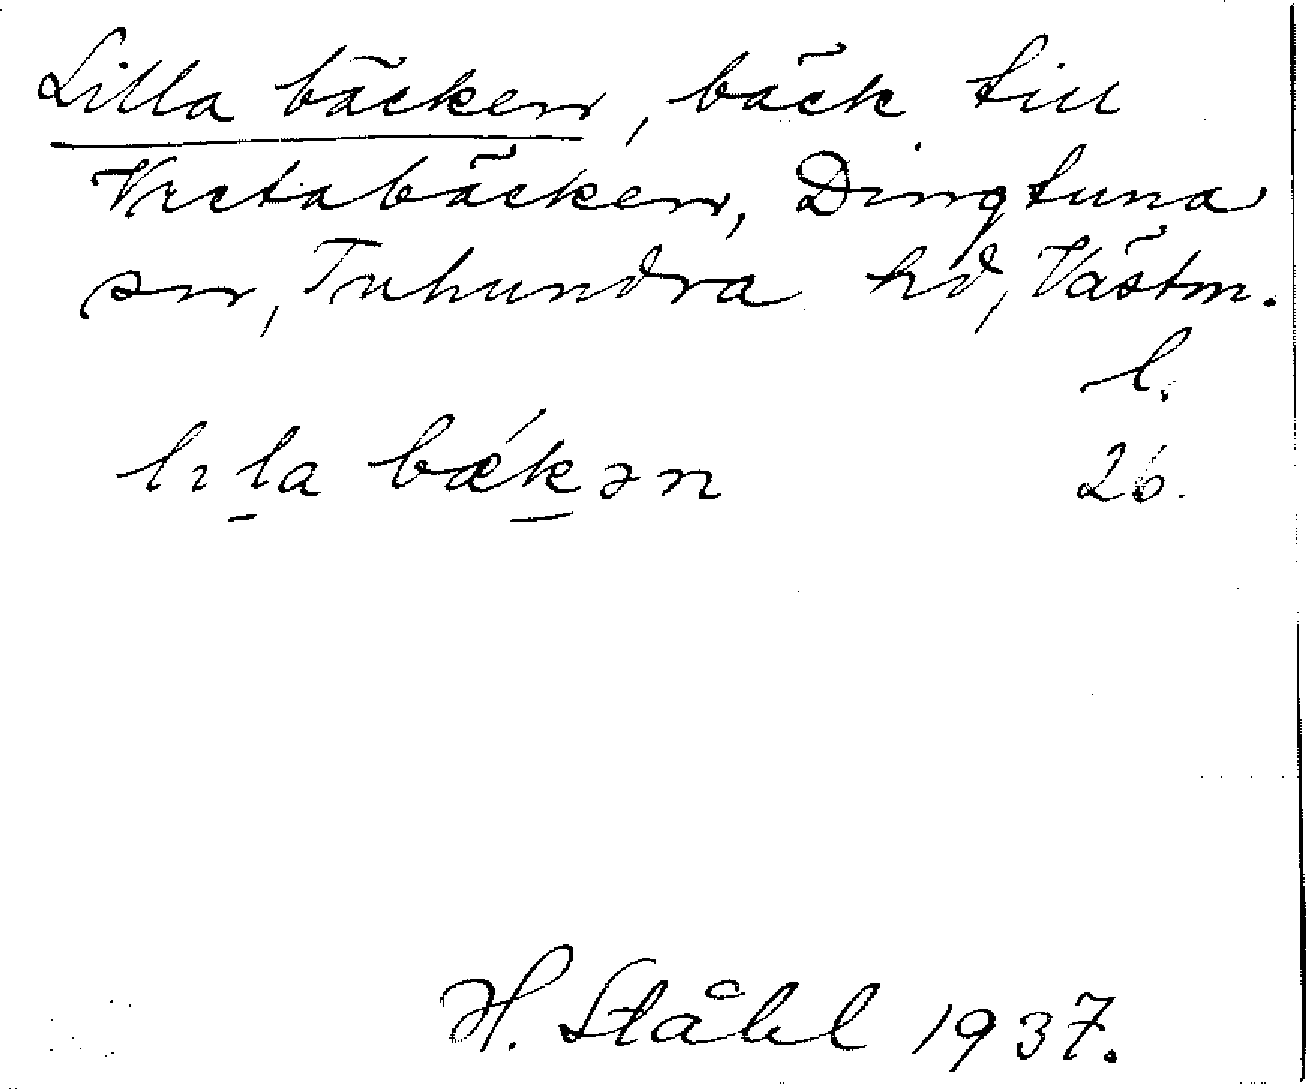 Lilla bäcken, bäck till
Vretabäcken, Dingtuna
sn, Tuhundra hd, Västm.
l.
lıla bǽkən 26.
H. Ståhl 1937.